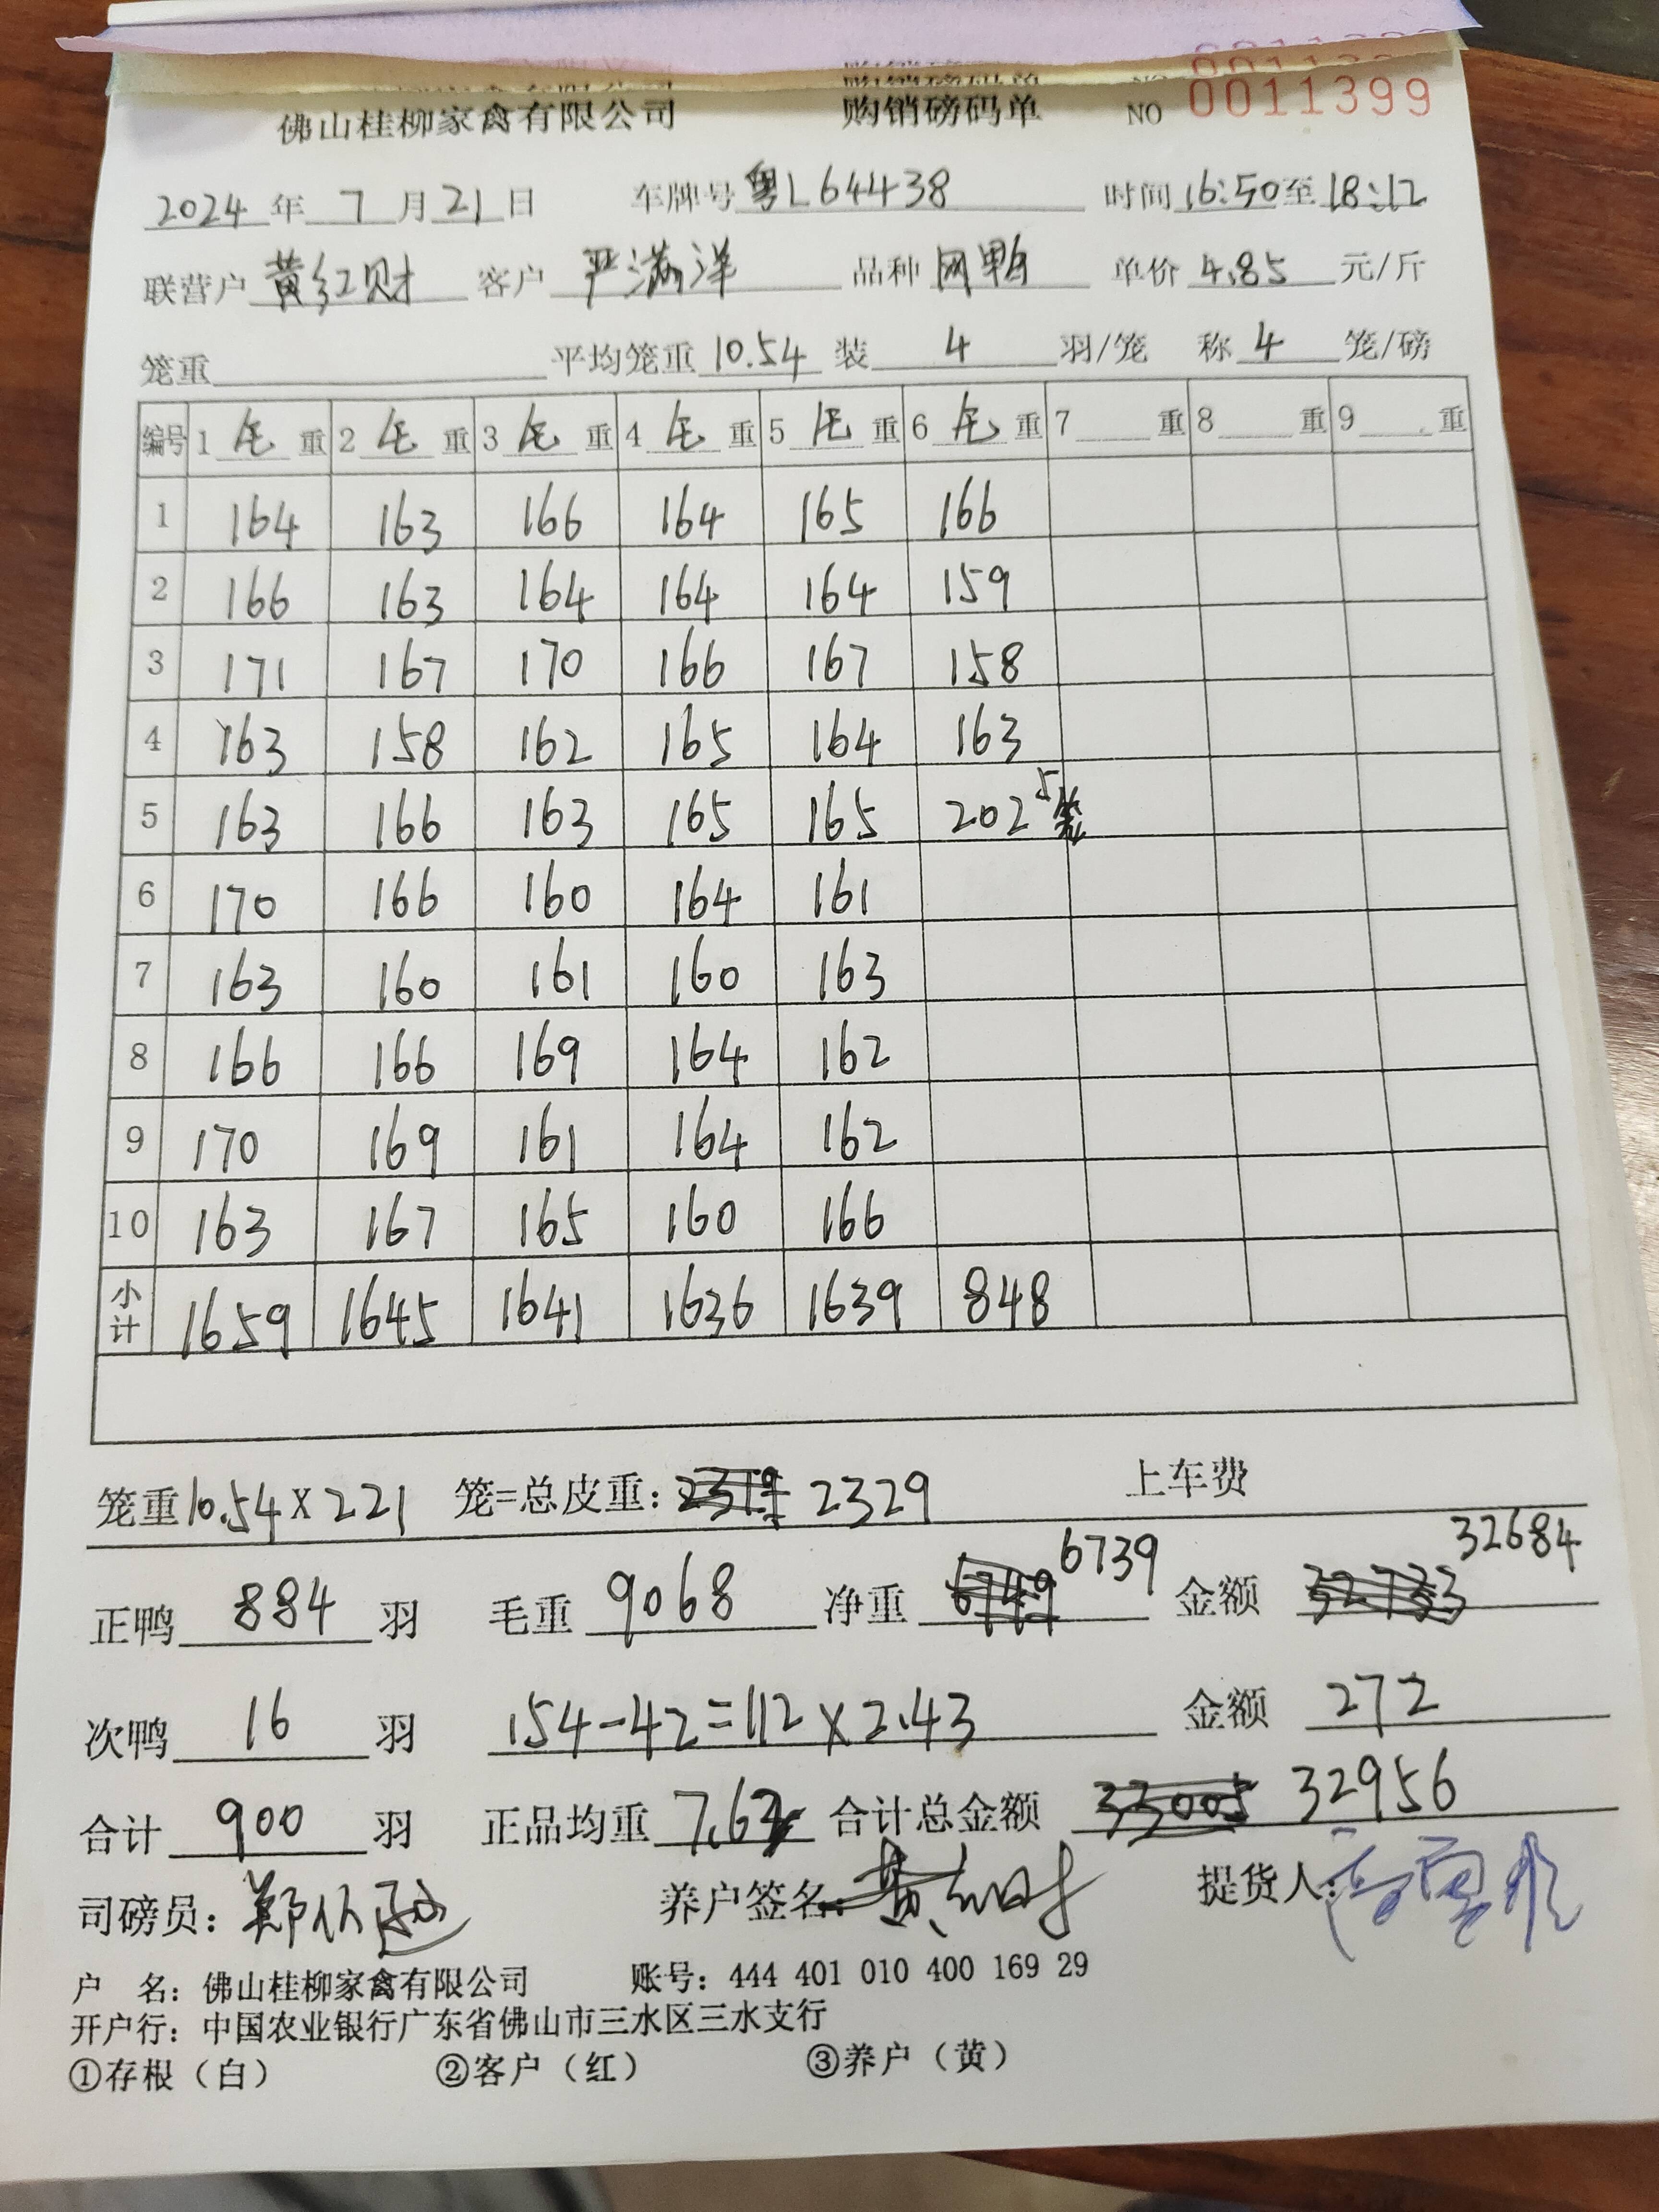 佛山桂柳家禽有限公司 购销磅码单 NO 0011399
2024 年 7 月 21 日 车牌号 粤L64438 时间 16:50 至 18:12
联营户 黄红财 客户 严满洋 品种 网鸭 单价 4.85 元/斤
笼重 平均笼重 10.54 装 4 羽/笼 称 4 笼/磅
编号 1 毛 重 2 毛 重 3 毛 重 4 毛 重 5 毛 重 6 毛 重 7 重 8 重 9 重
1 164 163 166 164 165 166
2 166 163 164 164 164 159
3 171 167 170 166 167 158
4 163 158 162 165 164 163
5 163 166 163 165 165 202 5笼
6 170 166 160 164 161
7 163 160 161 160 163
8 166 166 169 164 162
9 170 169 161 164 162
10 163 167 165 160 166
小计 1659 1645 1641 1636 1639 848
笼重 10.54 X 221 笼=总皮重: 2319 2329 上车费
正鸭 884 羽 毛重 9068 净重 6749 6739 金额 32733 32684
次鸭 16 羽 154-42=112 X 2.43 金额 272
合计 900 羽 正品均重 7.62 合计总金额 33005 32956
司磅员: 郑 养户签名: 黄红财 提货人:
户 名: 佛山桂柳家禽有限公司 账号: 444 401 010 400 169 29
开户行: 中国农业银行广东省佛山市三水区三水支行
①存根（白） ②客户（红） ③养户（黄）